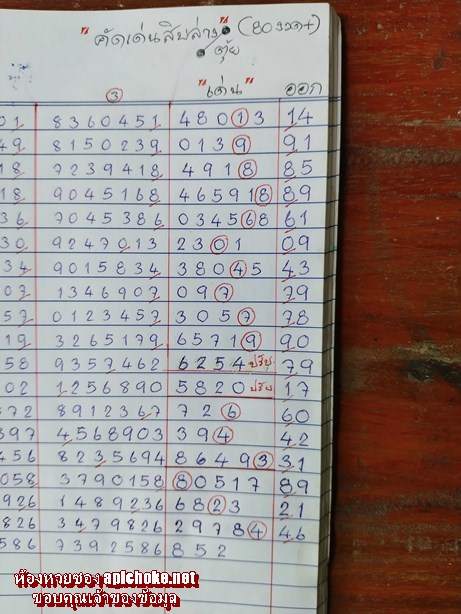 "คัดเด่นสิบล่าง" (80งวด+)
ตุ้ย
③ "เด่น" ออก
01 8360451 48013 14
49 8150239 0139 91
18 7239418 4918 85
18 9045168 465918 89
36 7045386 034568 61
30 9247013 2301 09
34 9015834 38045 43
07 1346907 097 79
57 0123457 3057 78
19 3265179 65719 90
58 9357462 6254 ปรับ 79
02 1256890 5820 ปรับ 17
672 8912367 726 60
397 4568903 394 42
456 8235694 86493 31
058 3790158 80517 89
926 1489236 6823 21
826 3479826 29784 46
586 7392586 852
ห้องหวยซอง apichoke.net
ขอบคุณเจ้าของข้อมูล